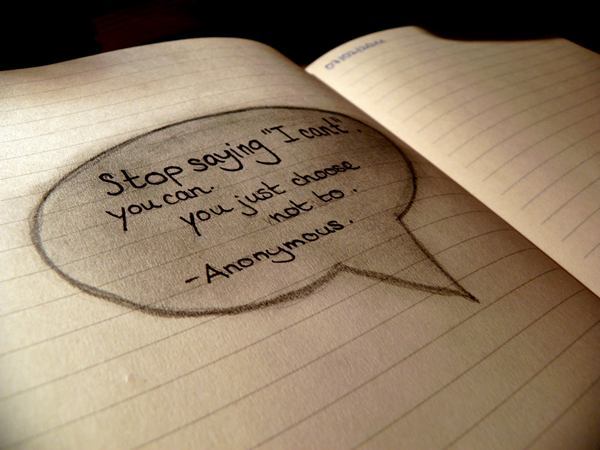 Stop saying "I cant".
you can.
you just choose
not to.
-Anonymous.